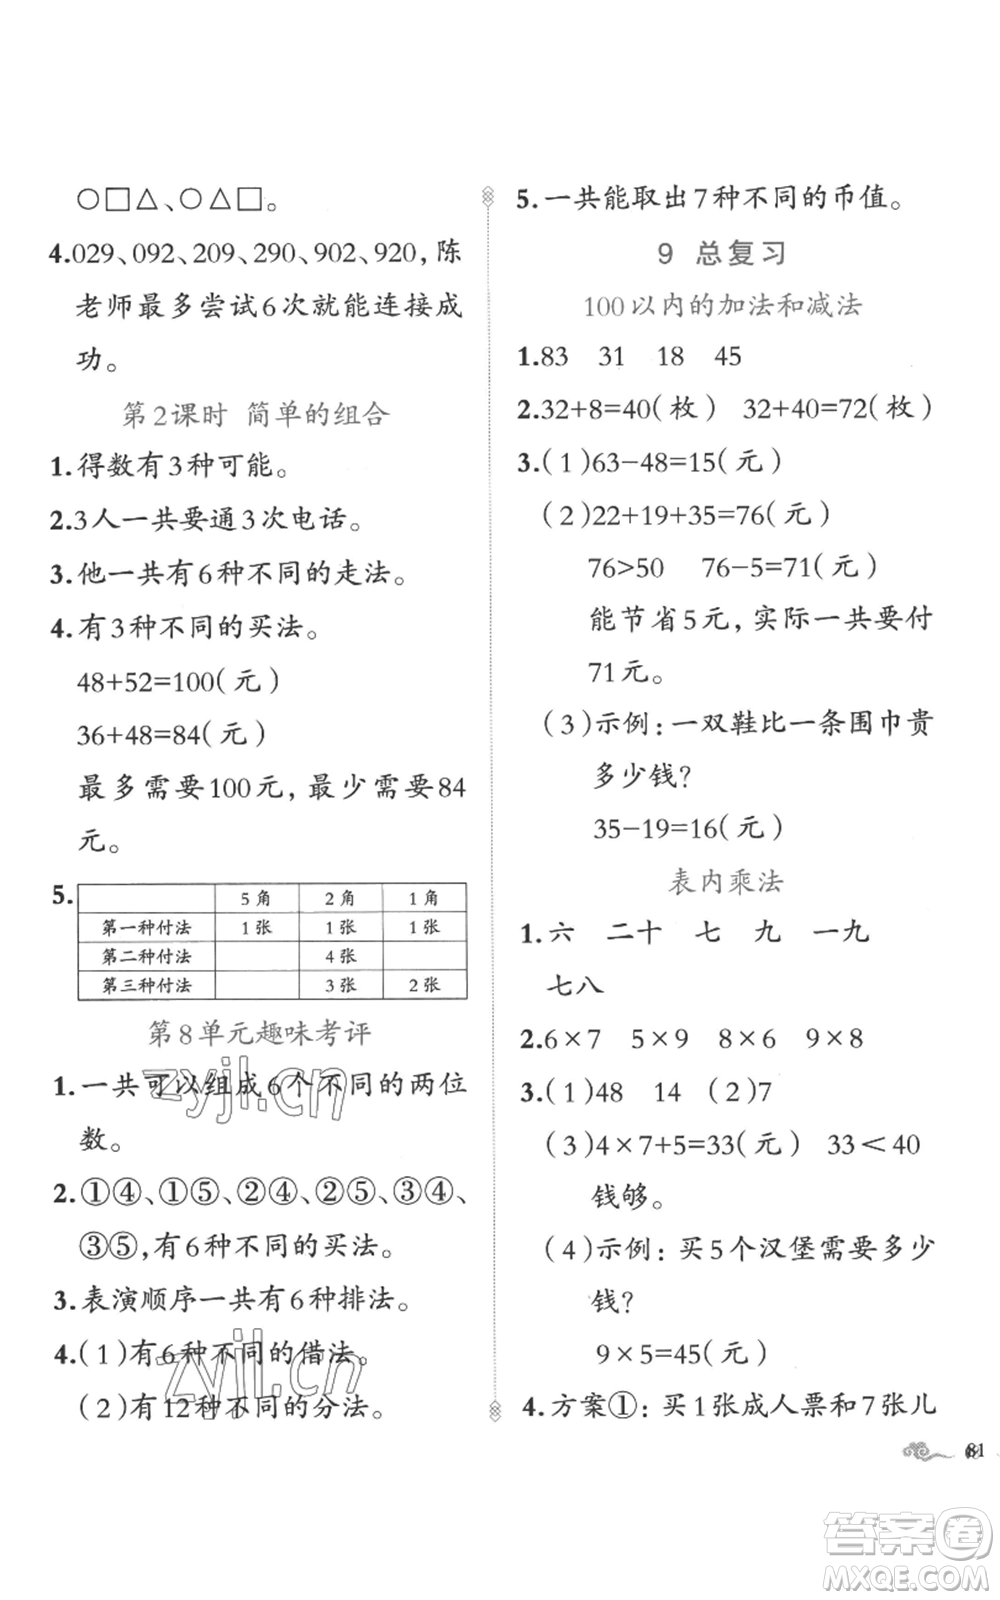 ○□△、○△□。
4.029、092、209、290、902、920,陈
老师最多尝试6次就能连接成
功。
第2课时 简单的组合
1.得数有3种可能。
2.3人一共要通3次电话。
3.他一共有6种不同的走法。
4.有3种不同的买法。
48+52=100(元)
36+48=84(元)
最多需要100元,最少需要84
元。
5.
5角 2角 1角
第一种付法 1张 1张 1张
第二种付法 4张
第三种付法 3张 2张
第8单元趣味考评
1.一共可以组成6个不同的两位
数。
2.①④、①⑤、②④、②⑤、③④、
③⑤,有6种不同的买法。
3.表演顺序一共有6种排法。
4.(1)有6种不同的借法。
(2)有12种不同的分法。
5.一共能取出7种不同的币值。
9 总复习
100以内的加法和减法
1.83 31 18 45
2.32+8=40(枚) 32+40=72(枚)
3.(1)63-48=15(元)
(2)22+19+35=76(元)
76>50 76-5=71(元)
能节省5元,实际一共要付
71元。
(3)示例:一双鞋比一条围巾贵
多少钱?
35-19=16(元)
表内乘法
1.六 二十 七 九 一九
七八
2.6×7 5×9 8×6 9×8
3.(1)48 14 (2)7
(3)4×7+5=33(元) 33<40
钱够。
(4)示例:买5个汉堡需要多少
钱?
9×5=45(元)
4.方案①:买1张成人票和7张儿
81
zyjl.cn
zyjl.cn
答案卷
MXQE.COM